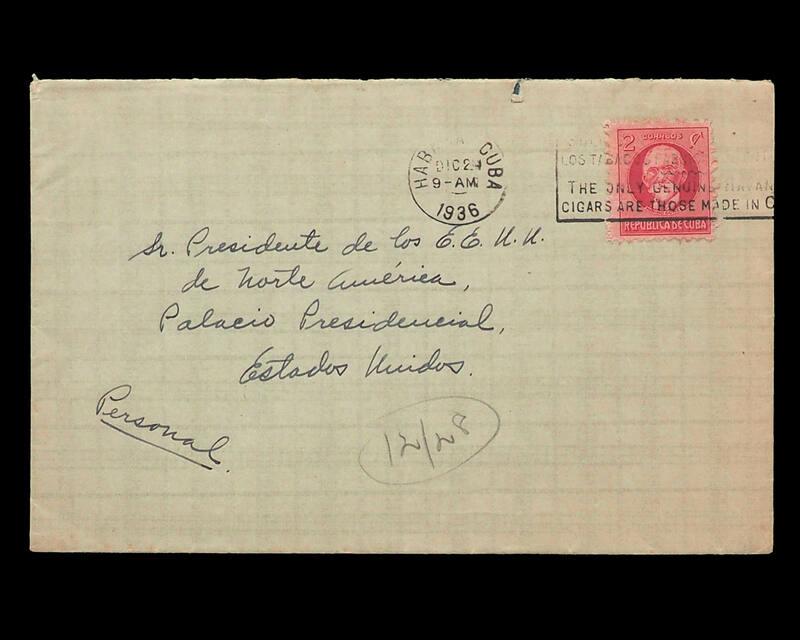 HABANA CUBA
DIC 24
9-AM
1936
LOS TABACOS
THE ONLY GENUINE HAVAN
CIGARS ARE THOSE MADE IN C
2 CORREOS ¢
REPUBLICA DE CUBA
Sr. Presidente de los E.E. U.U.
de Norte América,
Palacio Presidencial,
Estados Unidos.
Personal.
12/28